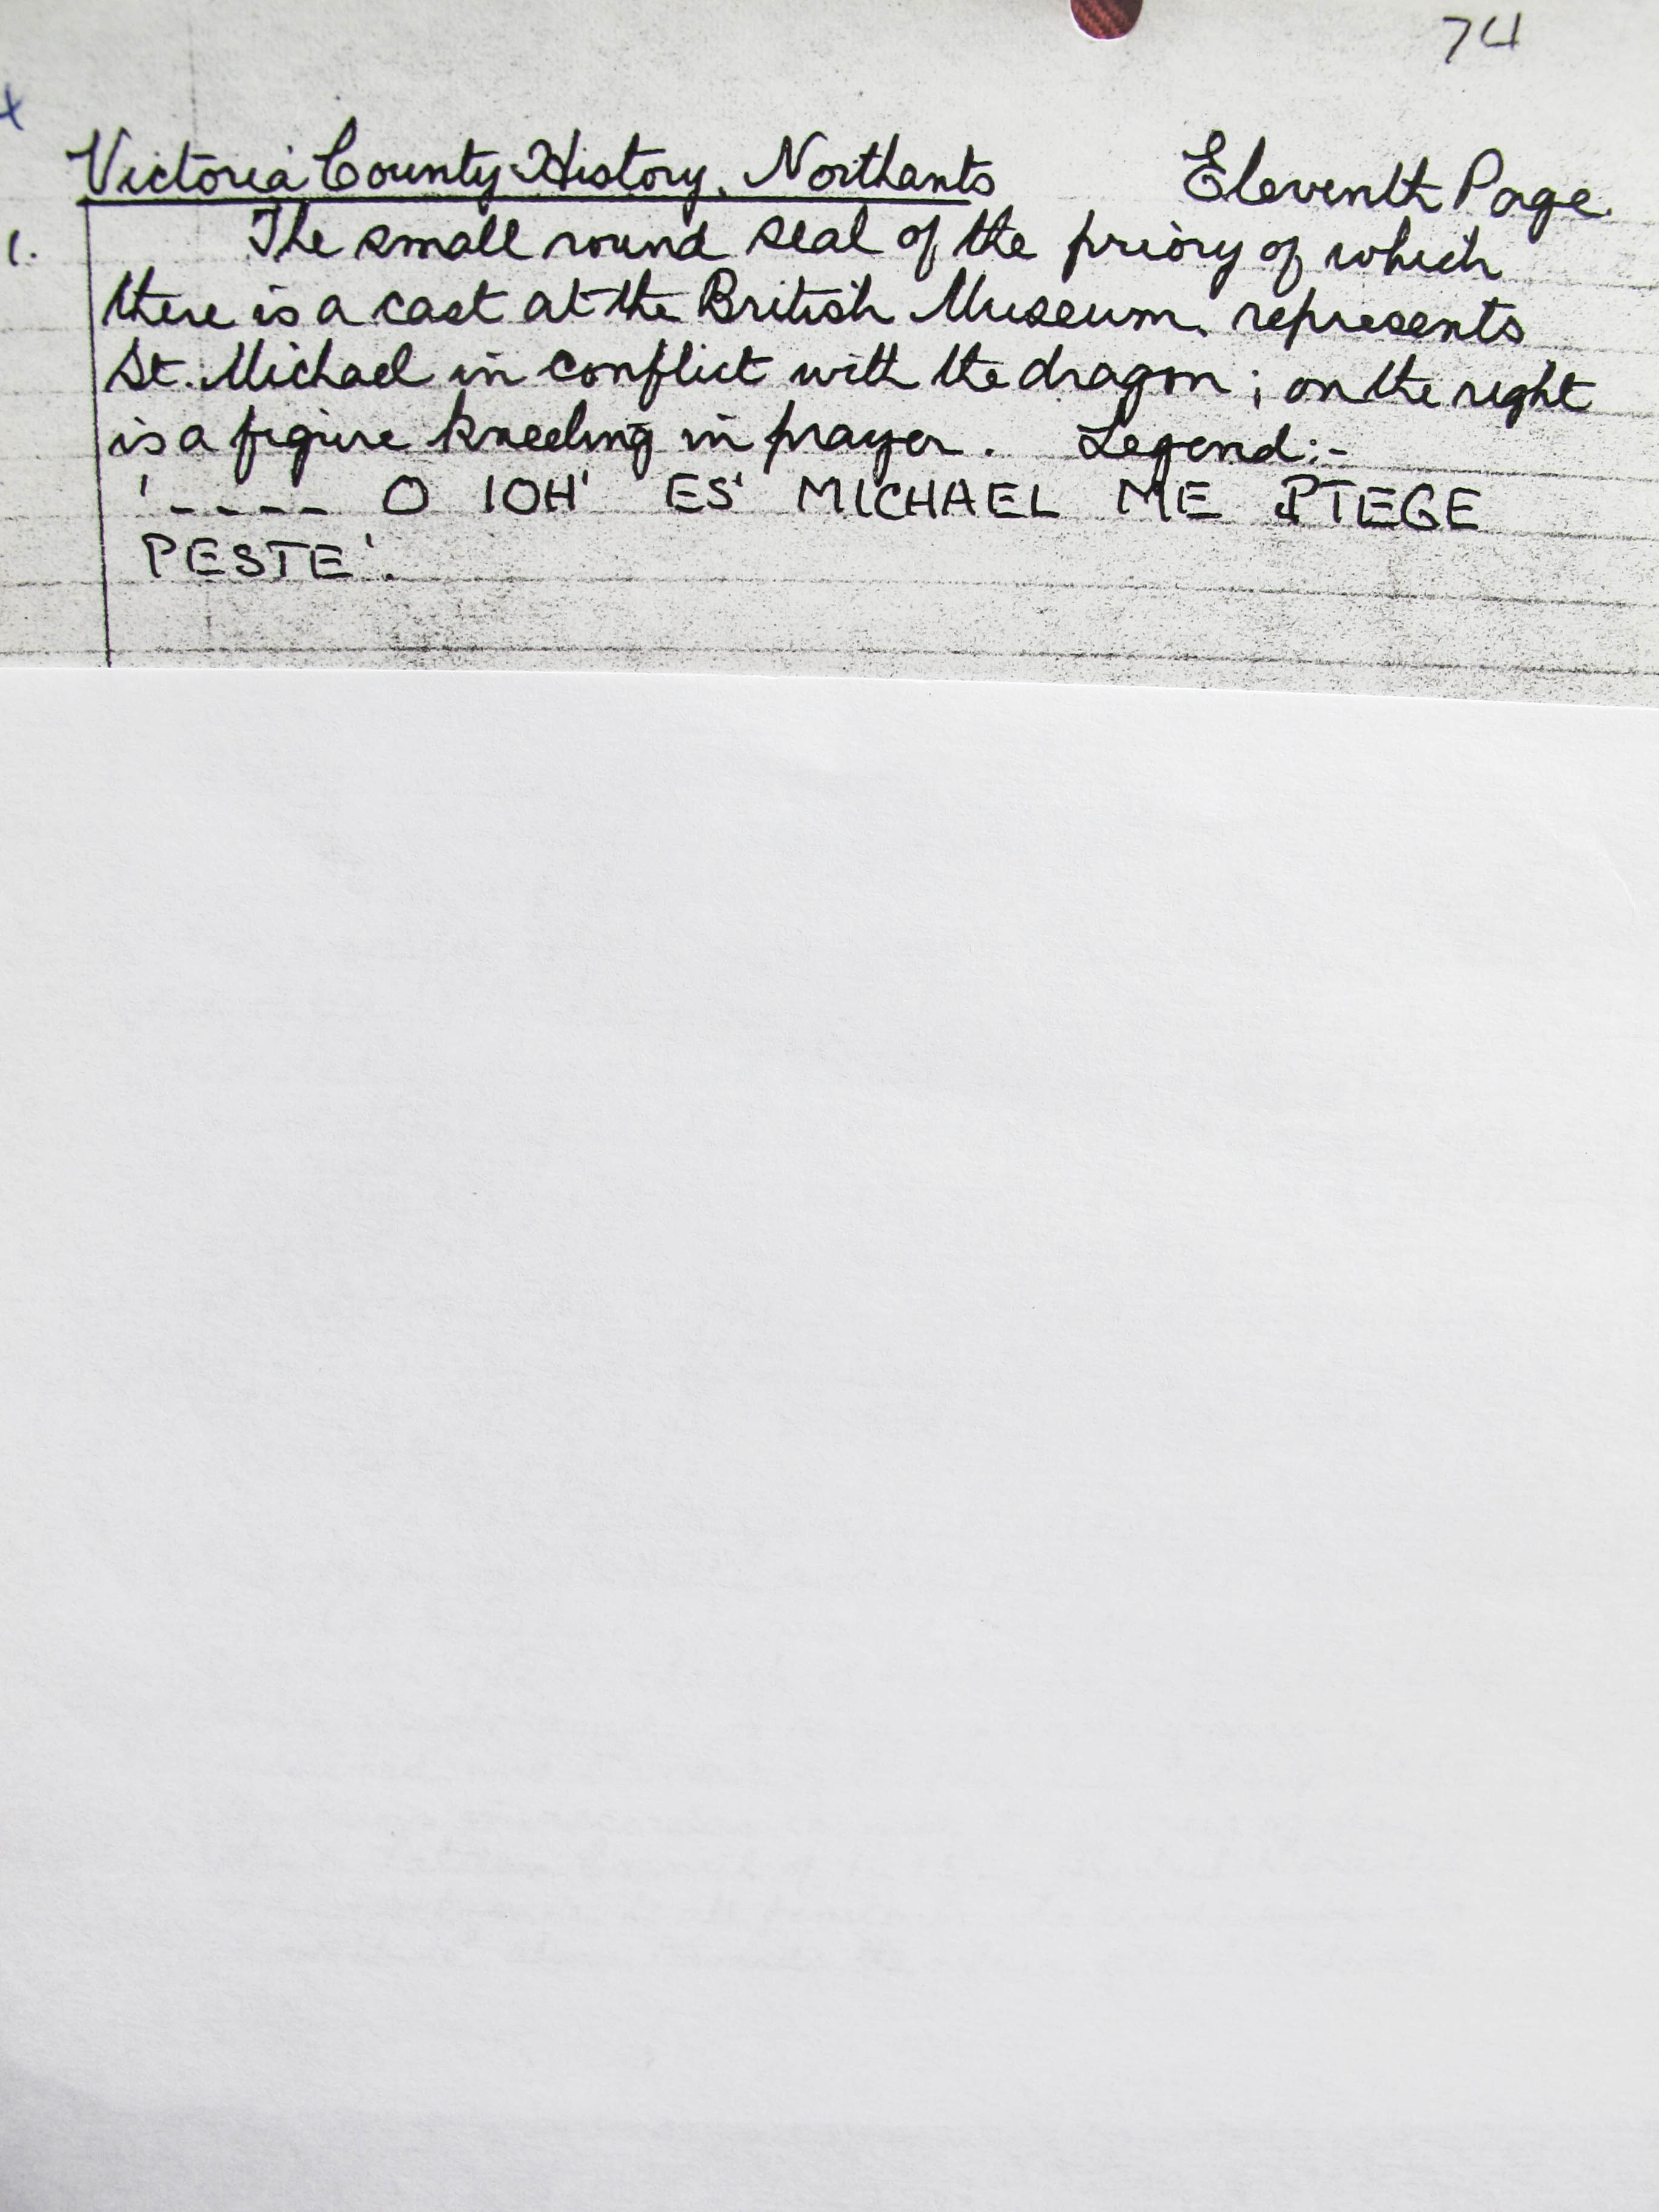 74
x
Victoria County History, Northants Eleventh Page.
1. The small round seal of the priory of which
there is a cast at the British Museum, represents
St. Michael in conflict with the dragon; on the right
is a figure kneeling in prayer. Legend:-
'---- O IOH' ES' MICHAEL ME PTEGE
PESTE'.